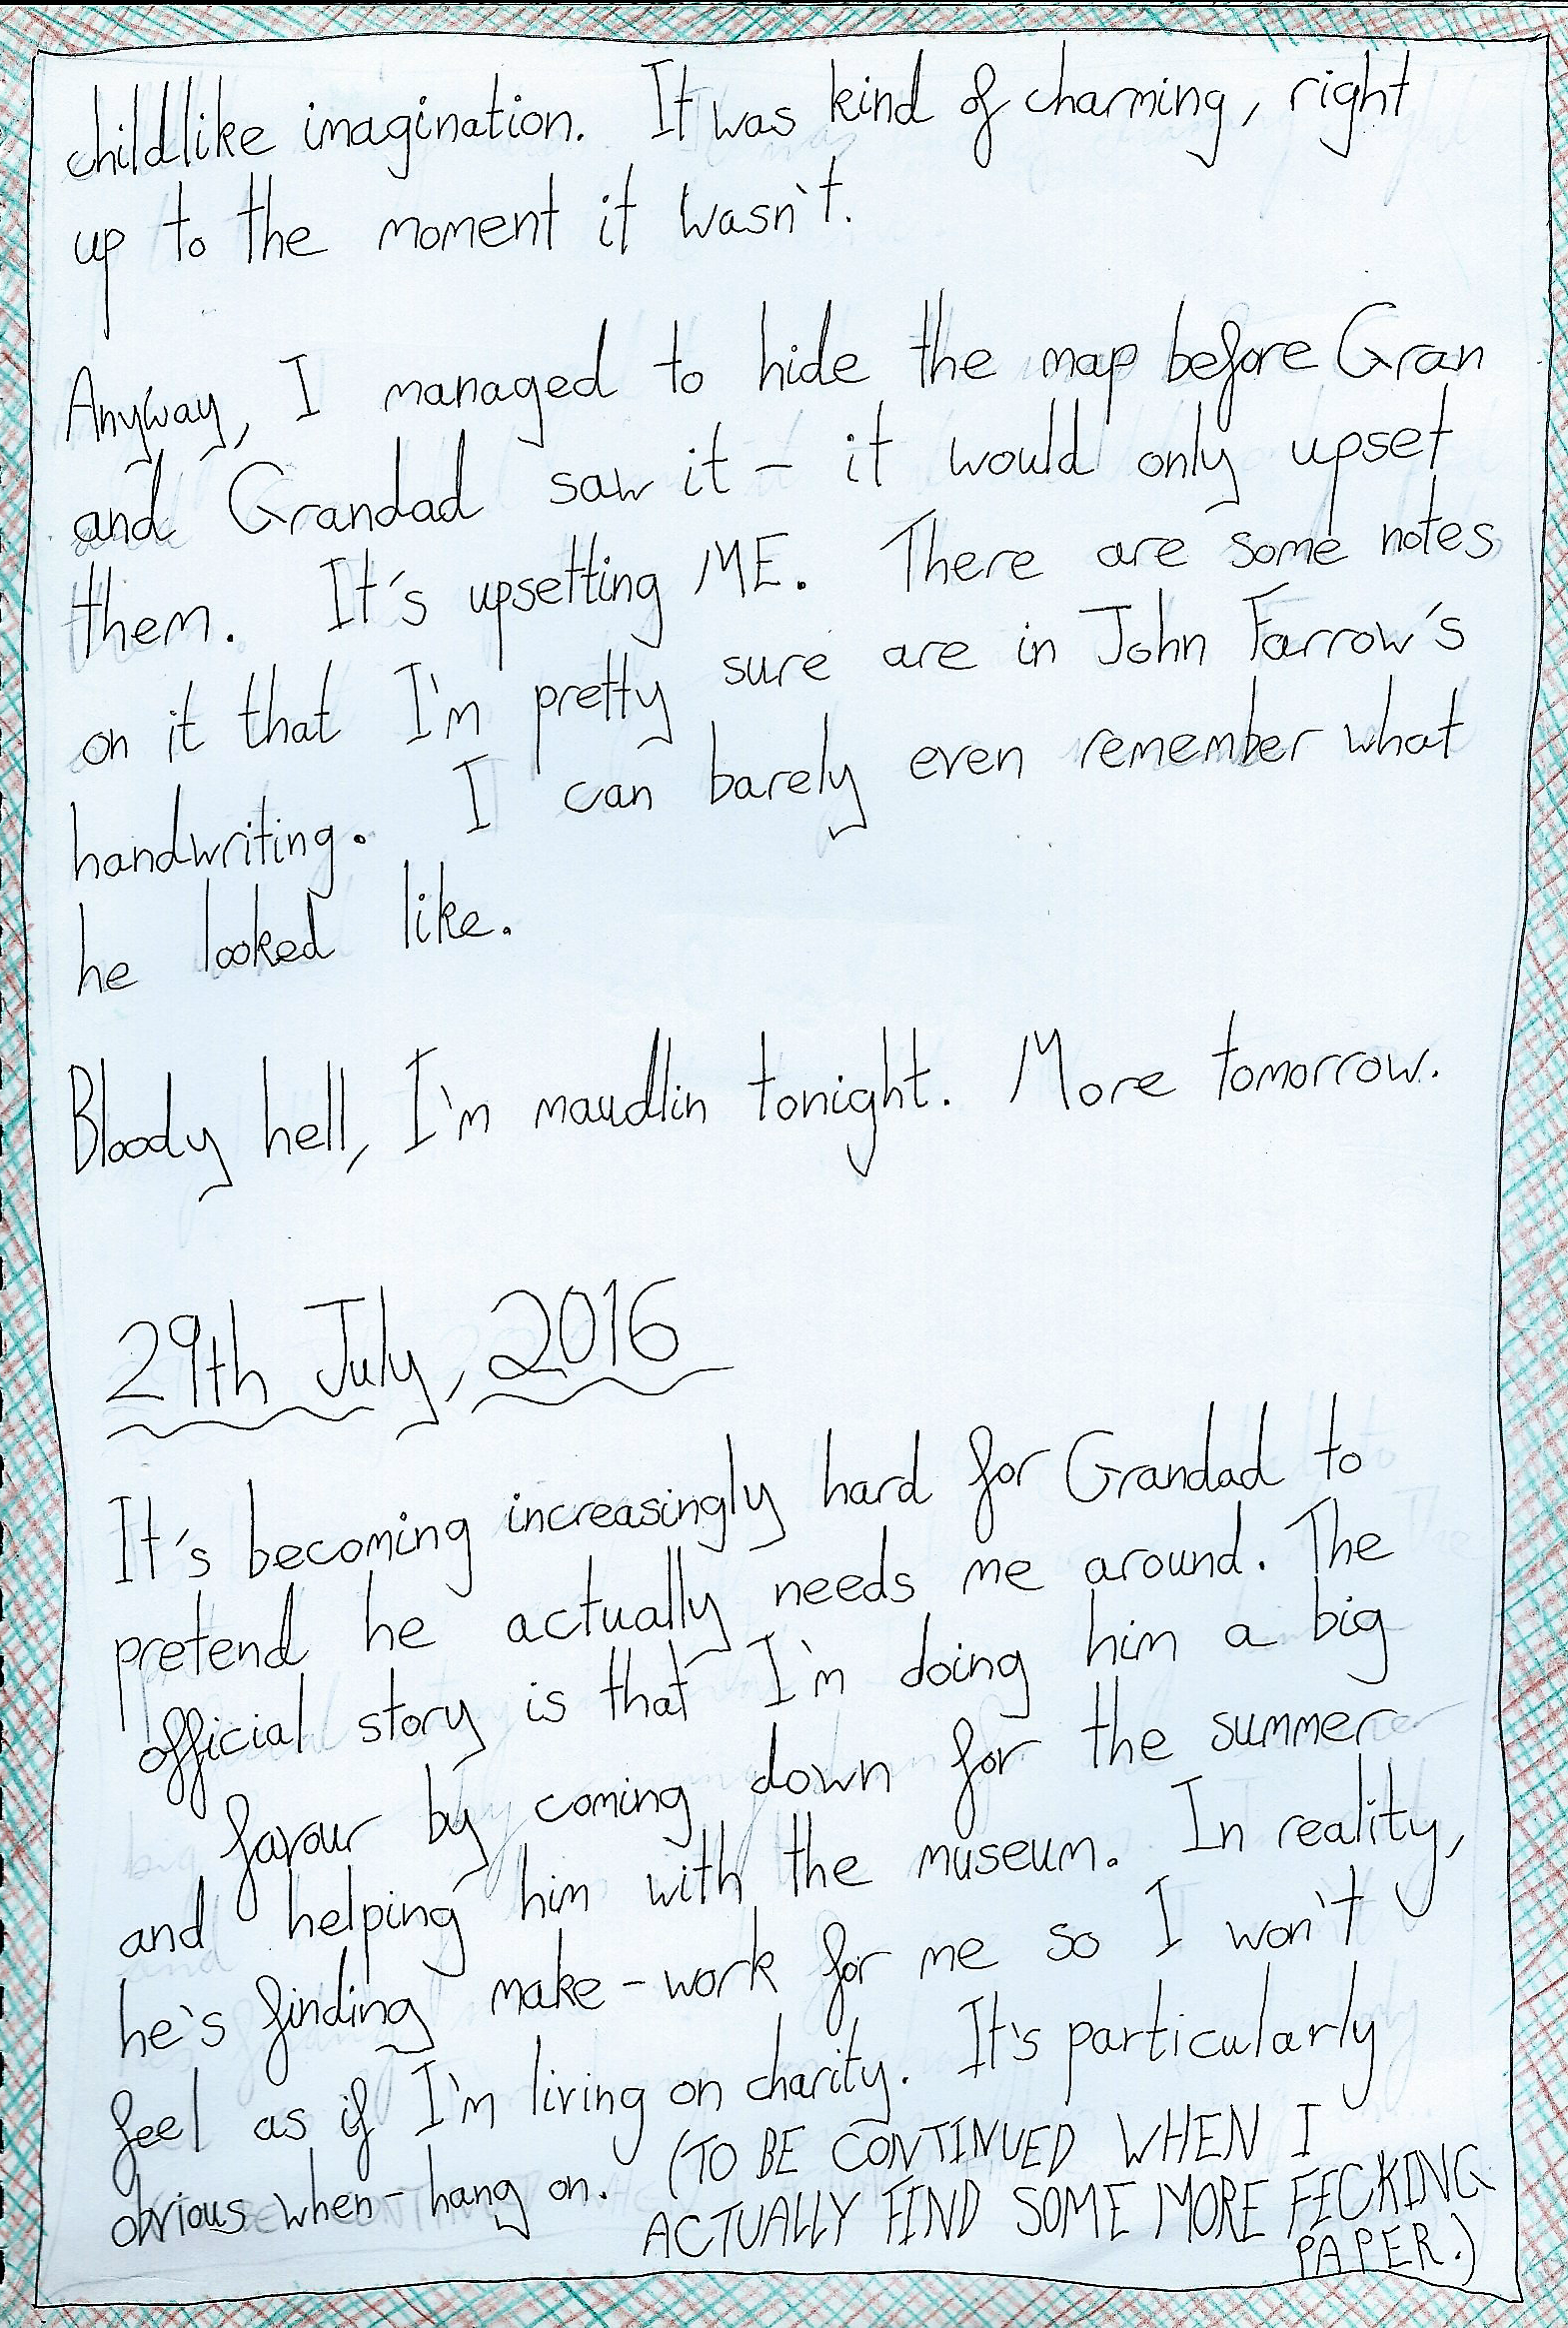 childlike imagination. It was kind of charming, right
up to the moment it wasn't.
Anyway, I managed to hide the map before Gran
and Grandad saw it – it would only upset
them. It's upsetting ME. There are some notes
on it that I'm pretty sure are in John Farrow's
handwriting. I can barely even remember what
he looked like.
Bloody hell, I'm maudlin tonight. More tomorrow.
29th July, 2016
It's becoming increasingly hard for Grandad to
pretend he actually needs me around. The
official story is that I'm doing him a big
favour by coming down for the summer
and helping him with the museum. In reality,
he's finding make-work for me so I won't
feel as if I'm living on charity. It's particularly
obvious when – hang on. (TO BE CONTINUED WHEN I
ACTUALLY FIND SOME MORE FECKING
PAPER.)